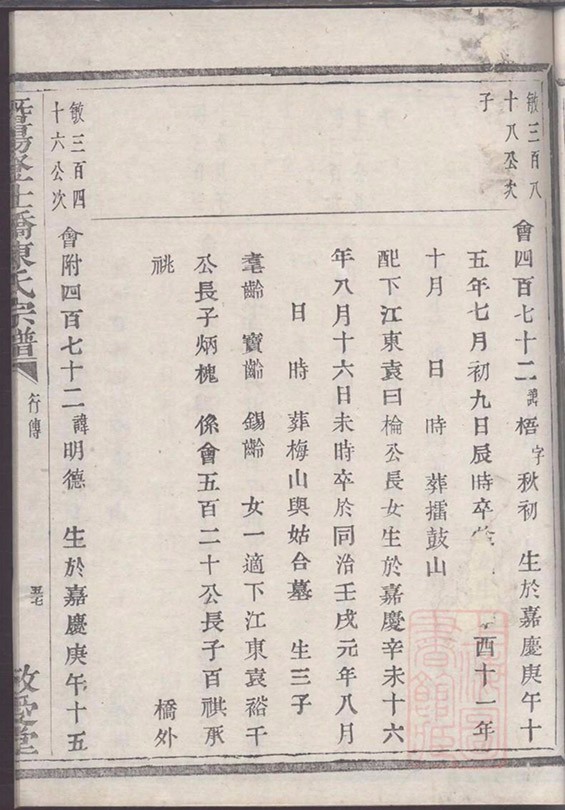 敏三百八
十八公次
子
會四百七十二 諱 梧 字 秋初 生於嘉慶庚午十
五年七月初九日辰時卒 酉十一年
十月 日 時 葬擂鼓山
配下江東袁曰棆公長女生於嘉慶辛未十六
年八月十六日未時卒於同治壬戌元年八月
日 時 葬梅山與姑合墓 生三子
耄齡 寶齡 錫齡 女一適下江東袁裕干
公長子炳槐 係會五百二十公長子百祺承
祧 橋外
敏三百四
十六公次
會附四百七十二 諱明德 生於嘉慶庚午十五
暨陽 仕橋陳氏宗譜
行傳
敬愛堂